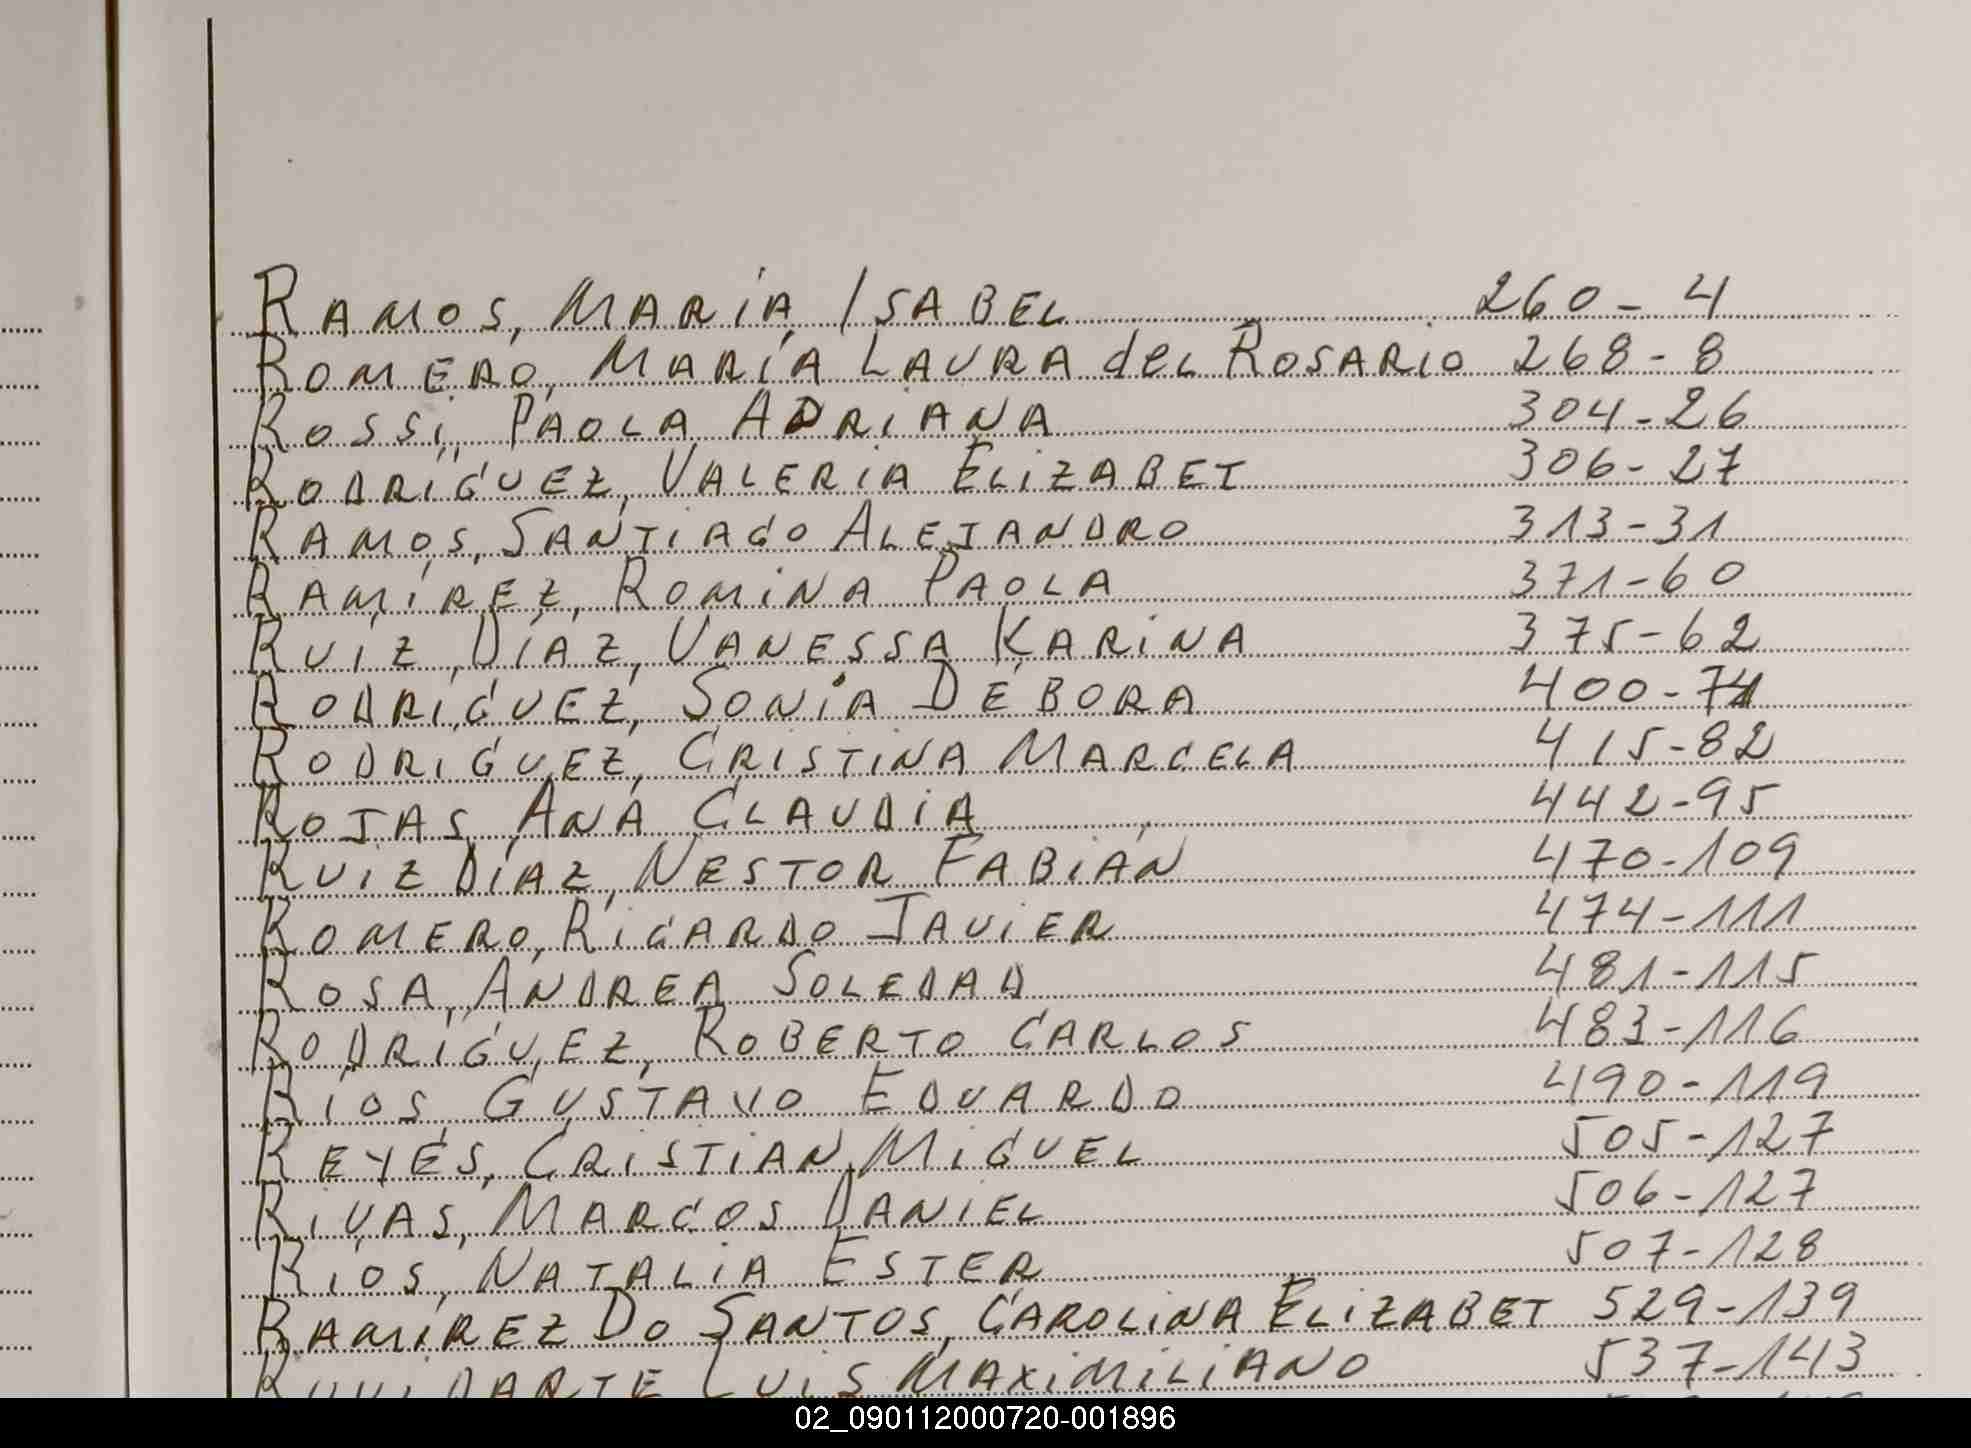 RAMOS, MARÍA ISABEL 260-4
ROMERO, MARÍA LAURA del ROSARIO 268-8
ROSSi, PAOLA ADRiANA 304-26
RODRÍGUEZ, VALERIA ELiZABET 306-27
RAMOS, SANTIAGO ALEJANDRO 313-31
RAMÍREZ, ROMiNA PAOLA 371-60
RUiZ DÍAZ, VANESSA KARiNA 375-62
RODRÍGUEZ, SONiA DÉBORA 400-74
RODRIGUEZ, CRISTiNA MARCELA 415-82
ROJAS, ANA CLAUDiA 442-95
RUiZ DÍAZ, NESTOR FABiÁN 470-109
ROMERO, RiCARDO JAViER 474-111
ROSA, ANDREA SOLEDAD 481-115
RODRÍGUEZ, ROBERTO CARLOS 483-116
RIOS, GUSTAVO EDUARDO 490-119
REYES, CRiSTiAN MiGUEL 505-127
RiVAS, MARCOS DANiEL 506-127
RÍOS, NATALiA ESTER 507-128
RAMÍREZ DO SANTOS, CAROLiNA ELiZABET 529-139
LUiS MAXiMiLiANO 537-143
02_090112000720-001896